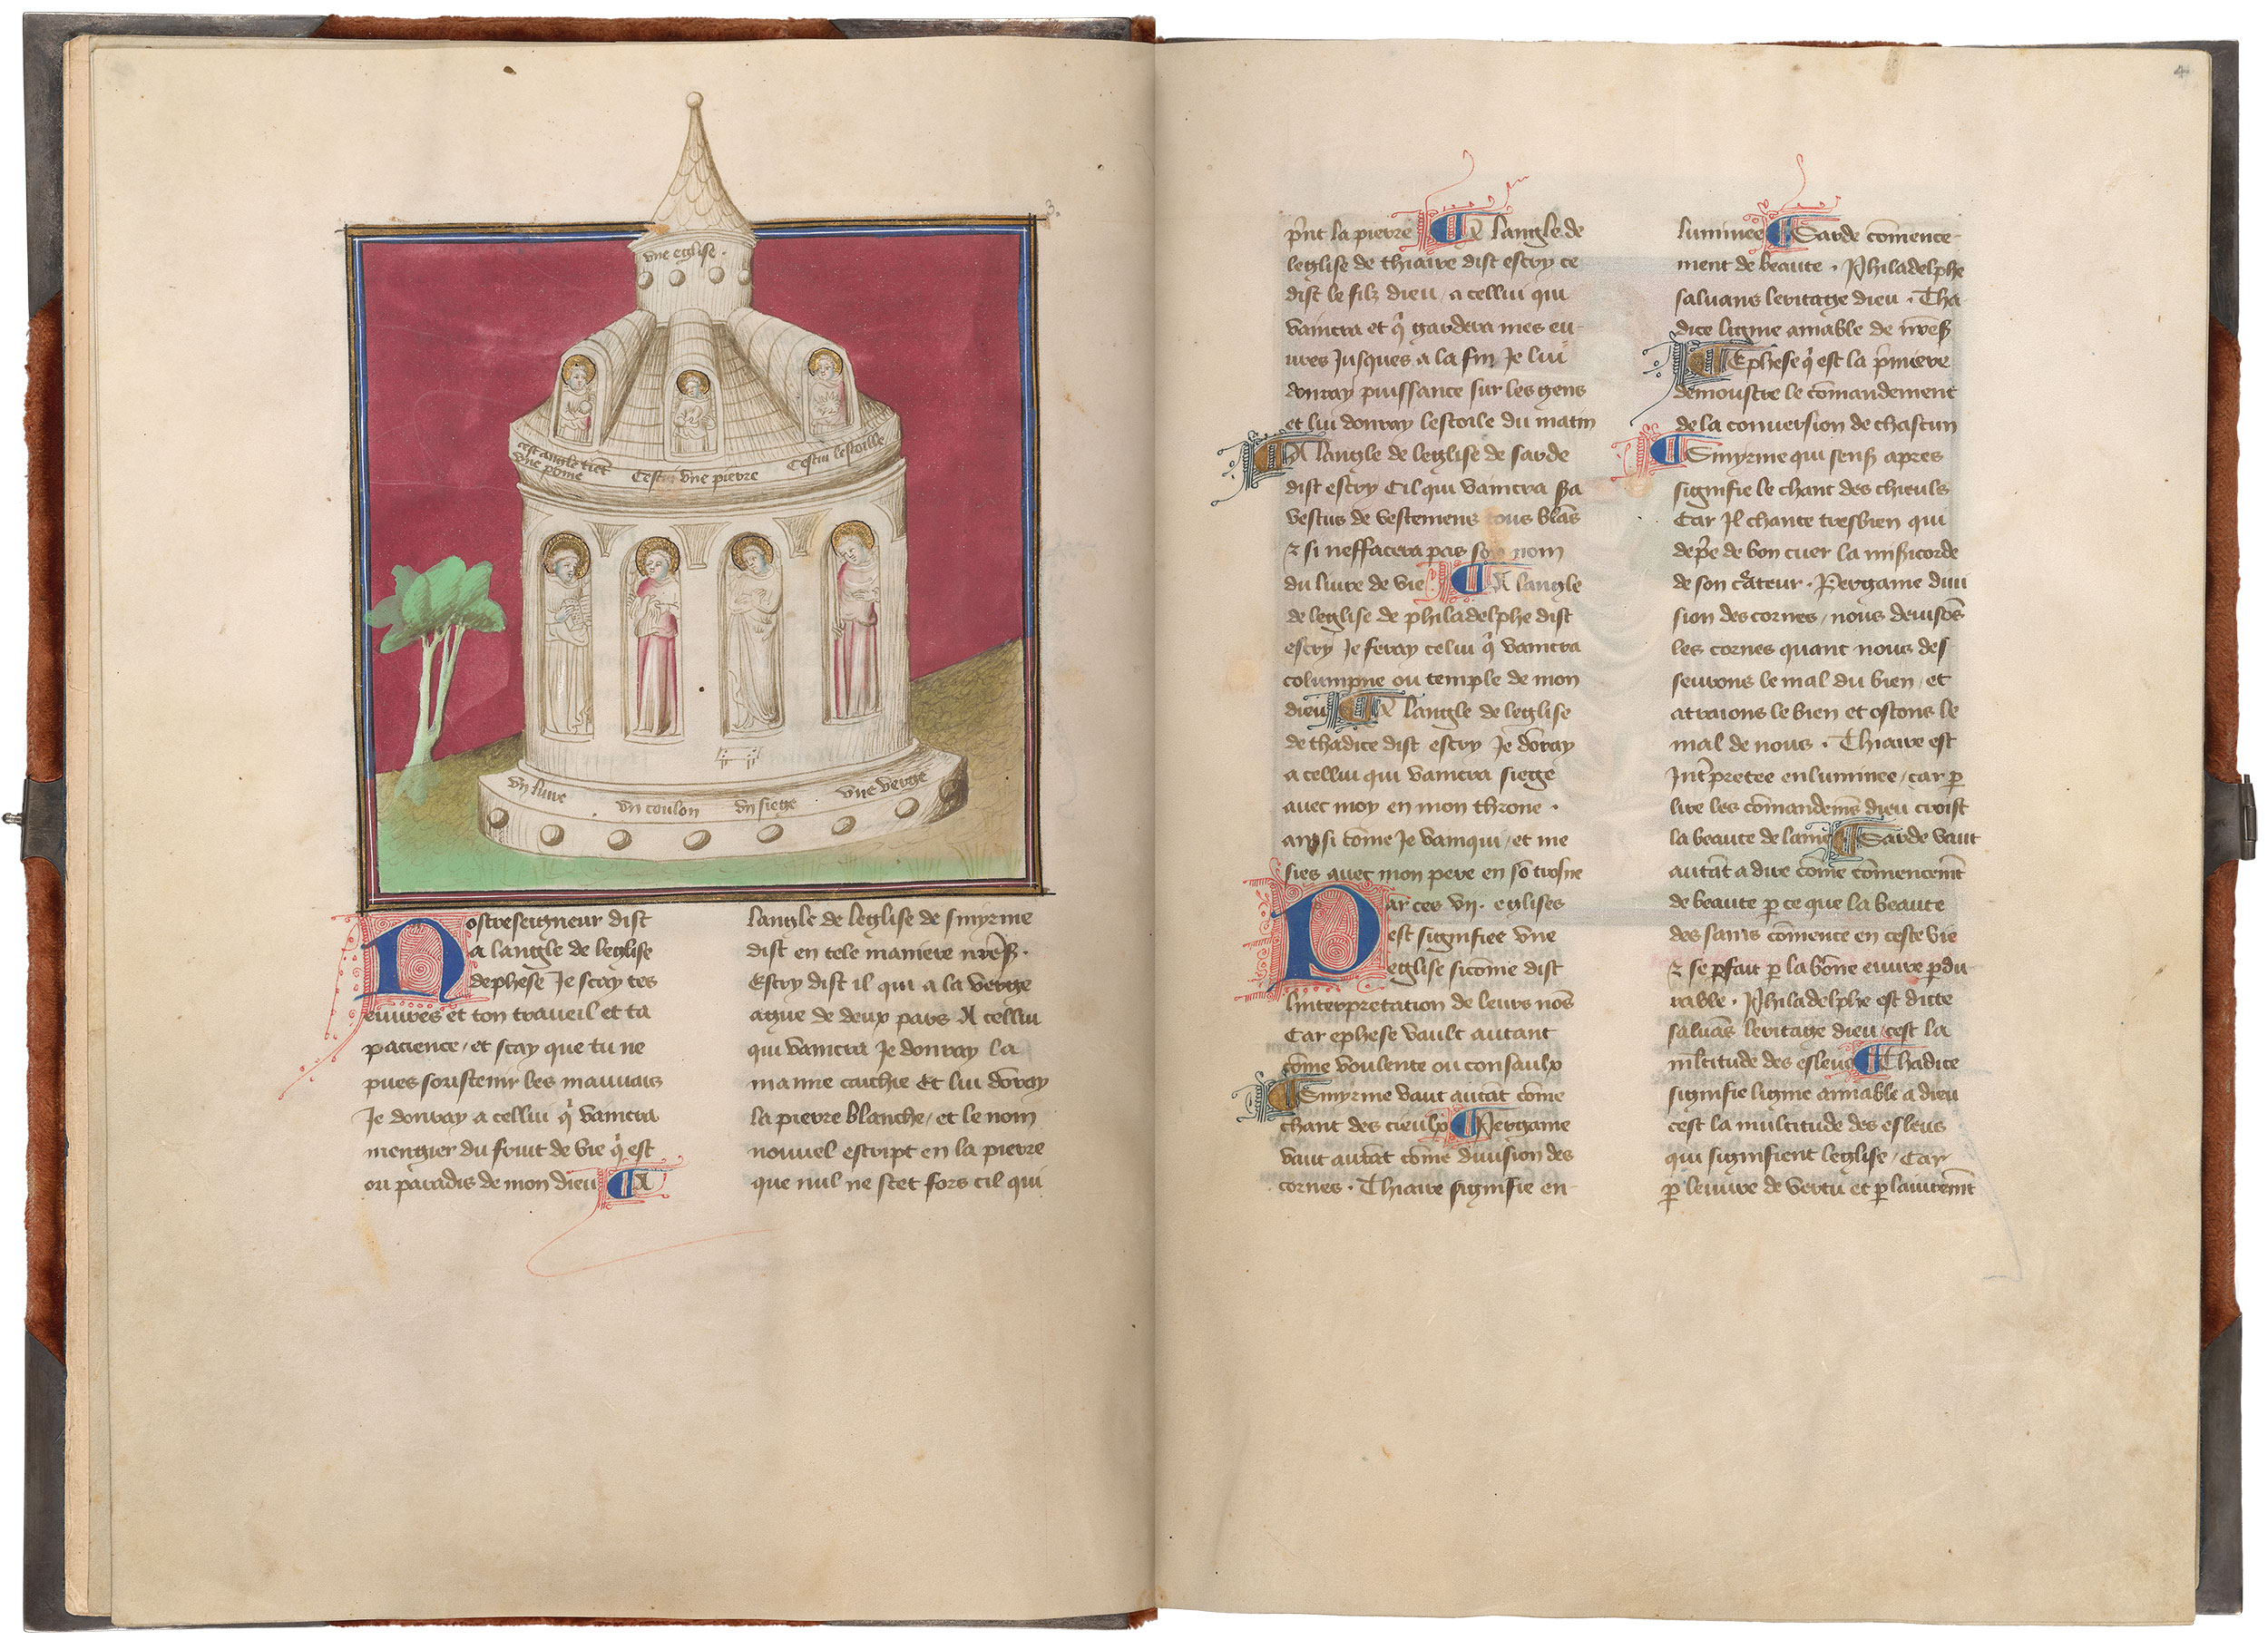 3.
vne eglise.
Cest angle tient
vne pome
Cest vne pierre
Cestui lestoille
vn liure
vn coulon
vn siege
vne verge
Nostreseigneur dist
a langle de leglise
dephese Je scay tes
euures et ton traueil et ta
pacience / et scay que tu ne
pues soustenir les mauuais
Je donray a cellui q̉ vaincra
mengier du fruit de vie q̉ est
ou paradis de mon dieu ¶ A
langle de leglise de smyrme
dist en tele maniere nr̄es.
Escry dist il qui a la verge
ague de deux pars A cellui
qui vaincra Je donray la
manne cachie Et lui dōray
la pierre blanche / et le nom
nouuel escript en la pierre
que nul ne scet fors cil qui
4
p̉nt la pierre ¶ A langle de
leglise de thiaire dist escry ce
dist le filz dieu / a cellui qui
vaincra et q̉ gardera mes eu-
ures Jusques a la fin Je lui
donray puissance sur les gens
et lui donray lestoile du matin
¶ A langle de leglise de sarde
dist escry Cil qui vaincra sera
vestus de vestemens tous blās
⁊ si neffacera pas son nom
du liure de vie ¶ A langle
de leglise de philadelphe dist
escry Je feray celui q̉ vaincra
columpne ou temple de mon
dieu ¶ A langle de leglise
de thadice dist escry Je dōray
a cellui qui vaincra siege
auec moy en mon throne.
ainsi cōme Je vainqui / et me
sies auec mon pere en sō trosne
Par ces vij. eglises
est signifiee vne
eglise sicōme dist
linterpretation de leurs nōs
Car ephese vault autant
cōme voulente ou consaulx
¶ Smyrme vaut autāt cōme
chant des cieulx ¶ Pergame
vaut autāt cōme diuision des
cornes. Thiaire signifie en-
luminee ¶ Sarde cōmence-
ment de beaute. Philadelphe
saluans leritage dieu. Tha
dice ligne amable de nr̄es
¶ Ephese q̉ est la p̉miere
demoustre le cōmandement
de la conuersion de chascun
¶ Smyrme qui sens apres
signifie le chant des chieulx
Car Jl chante tresbien qui
dep̄e de bon cuer la misicorde
de son c̉ateur. Pergame diui
sion des cornes / nous deuisōs
les cornes quant nous des
seurons le mal du bien / et
attraions le bien et ostons le
mal de nous. Thiaire est
Jnt̉pretee enluminee / car p̱
lire les cōmandemēs dieu croist
la beaute de lame ¶ Sarde vaut
autāt a dire cōme cōmencemēt
de beaute p̱ ce que la beaute
des sains cōmence en ceste vie
⁊ se p̱fait p̱ la bōne euure p̱du
rable. Philadelphe est dicte
saluās leritage dieu / cest la
mltitude des esleus ¶ Thadice
signifie ligne amable a dieu
cest la multitude des esleus
qui signifient leglise / Car
p̱ leuure de vertu et p̱ lauiremēt